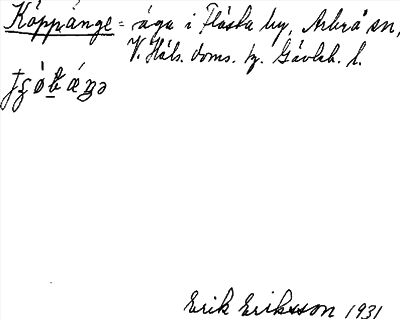 Käppänge = äga i Flästa by, Arbrå sn,
V. Häls. doms. hg. Gävleb. l.
Erik Eriksson 1931